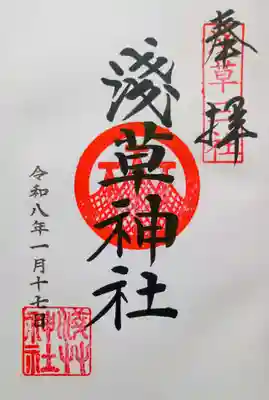 奉拝
淺草神社
令和八年一月十七日
淺草
神社